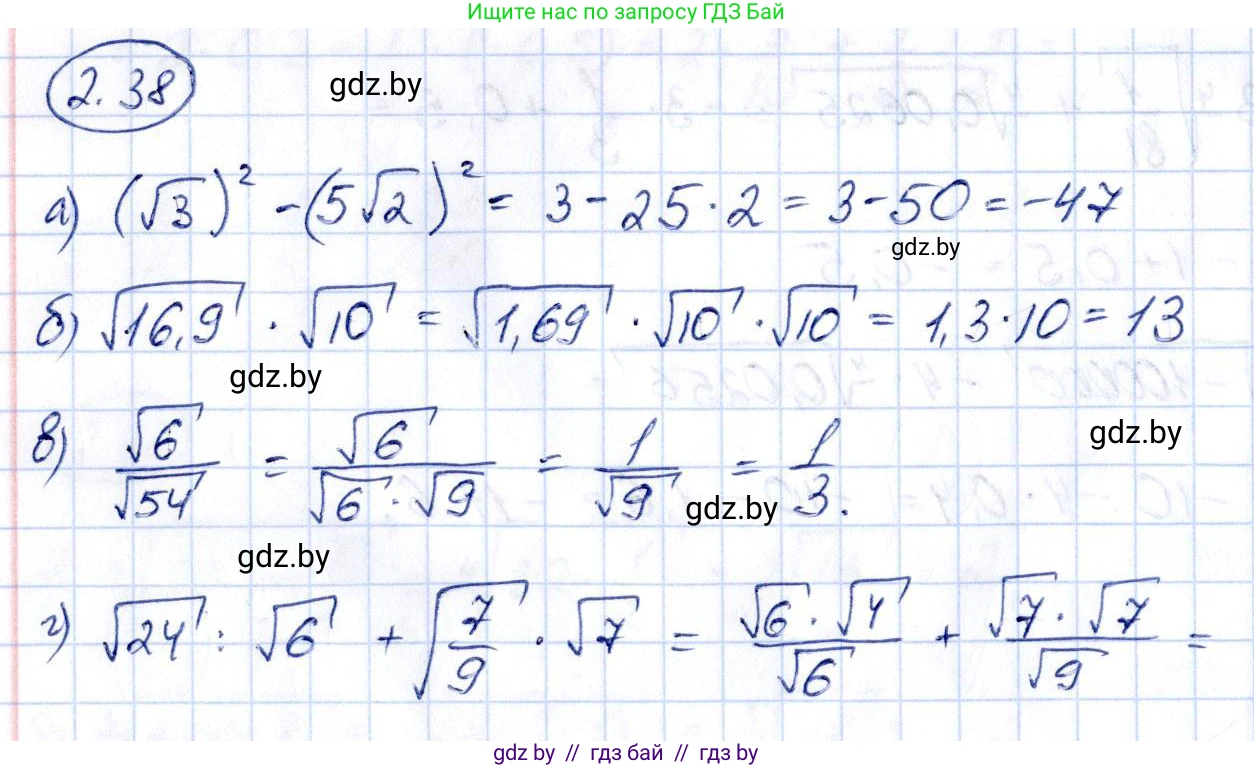 Ищите нас по запросу ГДЗ Бай
2.38 gdz.by
а) (√3)² - (5√2)² = 3 - 25 · 2 = 3 - 50 = -47
gdz.by
б) √16,9 · √10 = √1,69 · √10 · √10 = 1,3 · 10 = 13
gdz.by
в) √6/√54 = √6/(√6 · √9) = 1/√9 = 1/3.
gdz.by
gdz.by
gdz.by
г) √24 : √6 + √(7/9) · √7 = (√6 · √4)/√6 + (√7 · √7)/√9 =
gdz.by // гдз бай // гдз by